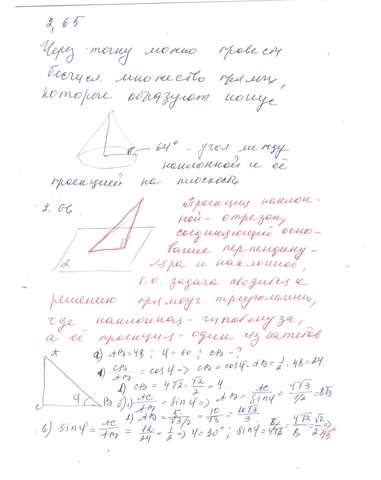 2,65
Через точку можно провести
бесчисл. множество прямых,
которые образуют конус
64° - угол между
наклонной и её
проекцией на плоскость
2.66
Проекция наклон-
ной - отрезок,
соединяющий осно-
вание перпендику-
ляра и наклонной,
α
т.о. задача сводится к
решению прямоуг треугольника,
где наклонная - гипотенуза,
а её проекция - один из катетов
A
C
B
φ
а) AB=48; φ=60; CB-?
CB/AB = cosφ → CB = cosφ·AB = 1/2·48=24.
CB = 4√2·√2/2 = 4.
б) 1) AC/AB = sinφ ⇒ AB = AC/sinφ = 4√3/1/2 = 8√3
2) AB = 5/√3/2 = 10/√3 = 10√3/3
в) sinφ = AC/AB = 12/24 = 1/2 ⇒ φ=30°; sinφ = = 4√2/8 = √2/2 ⇒
45°